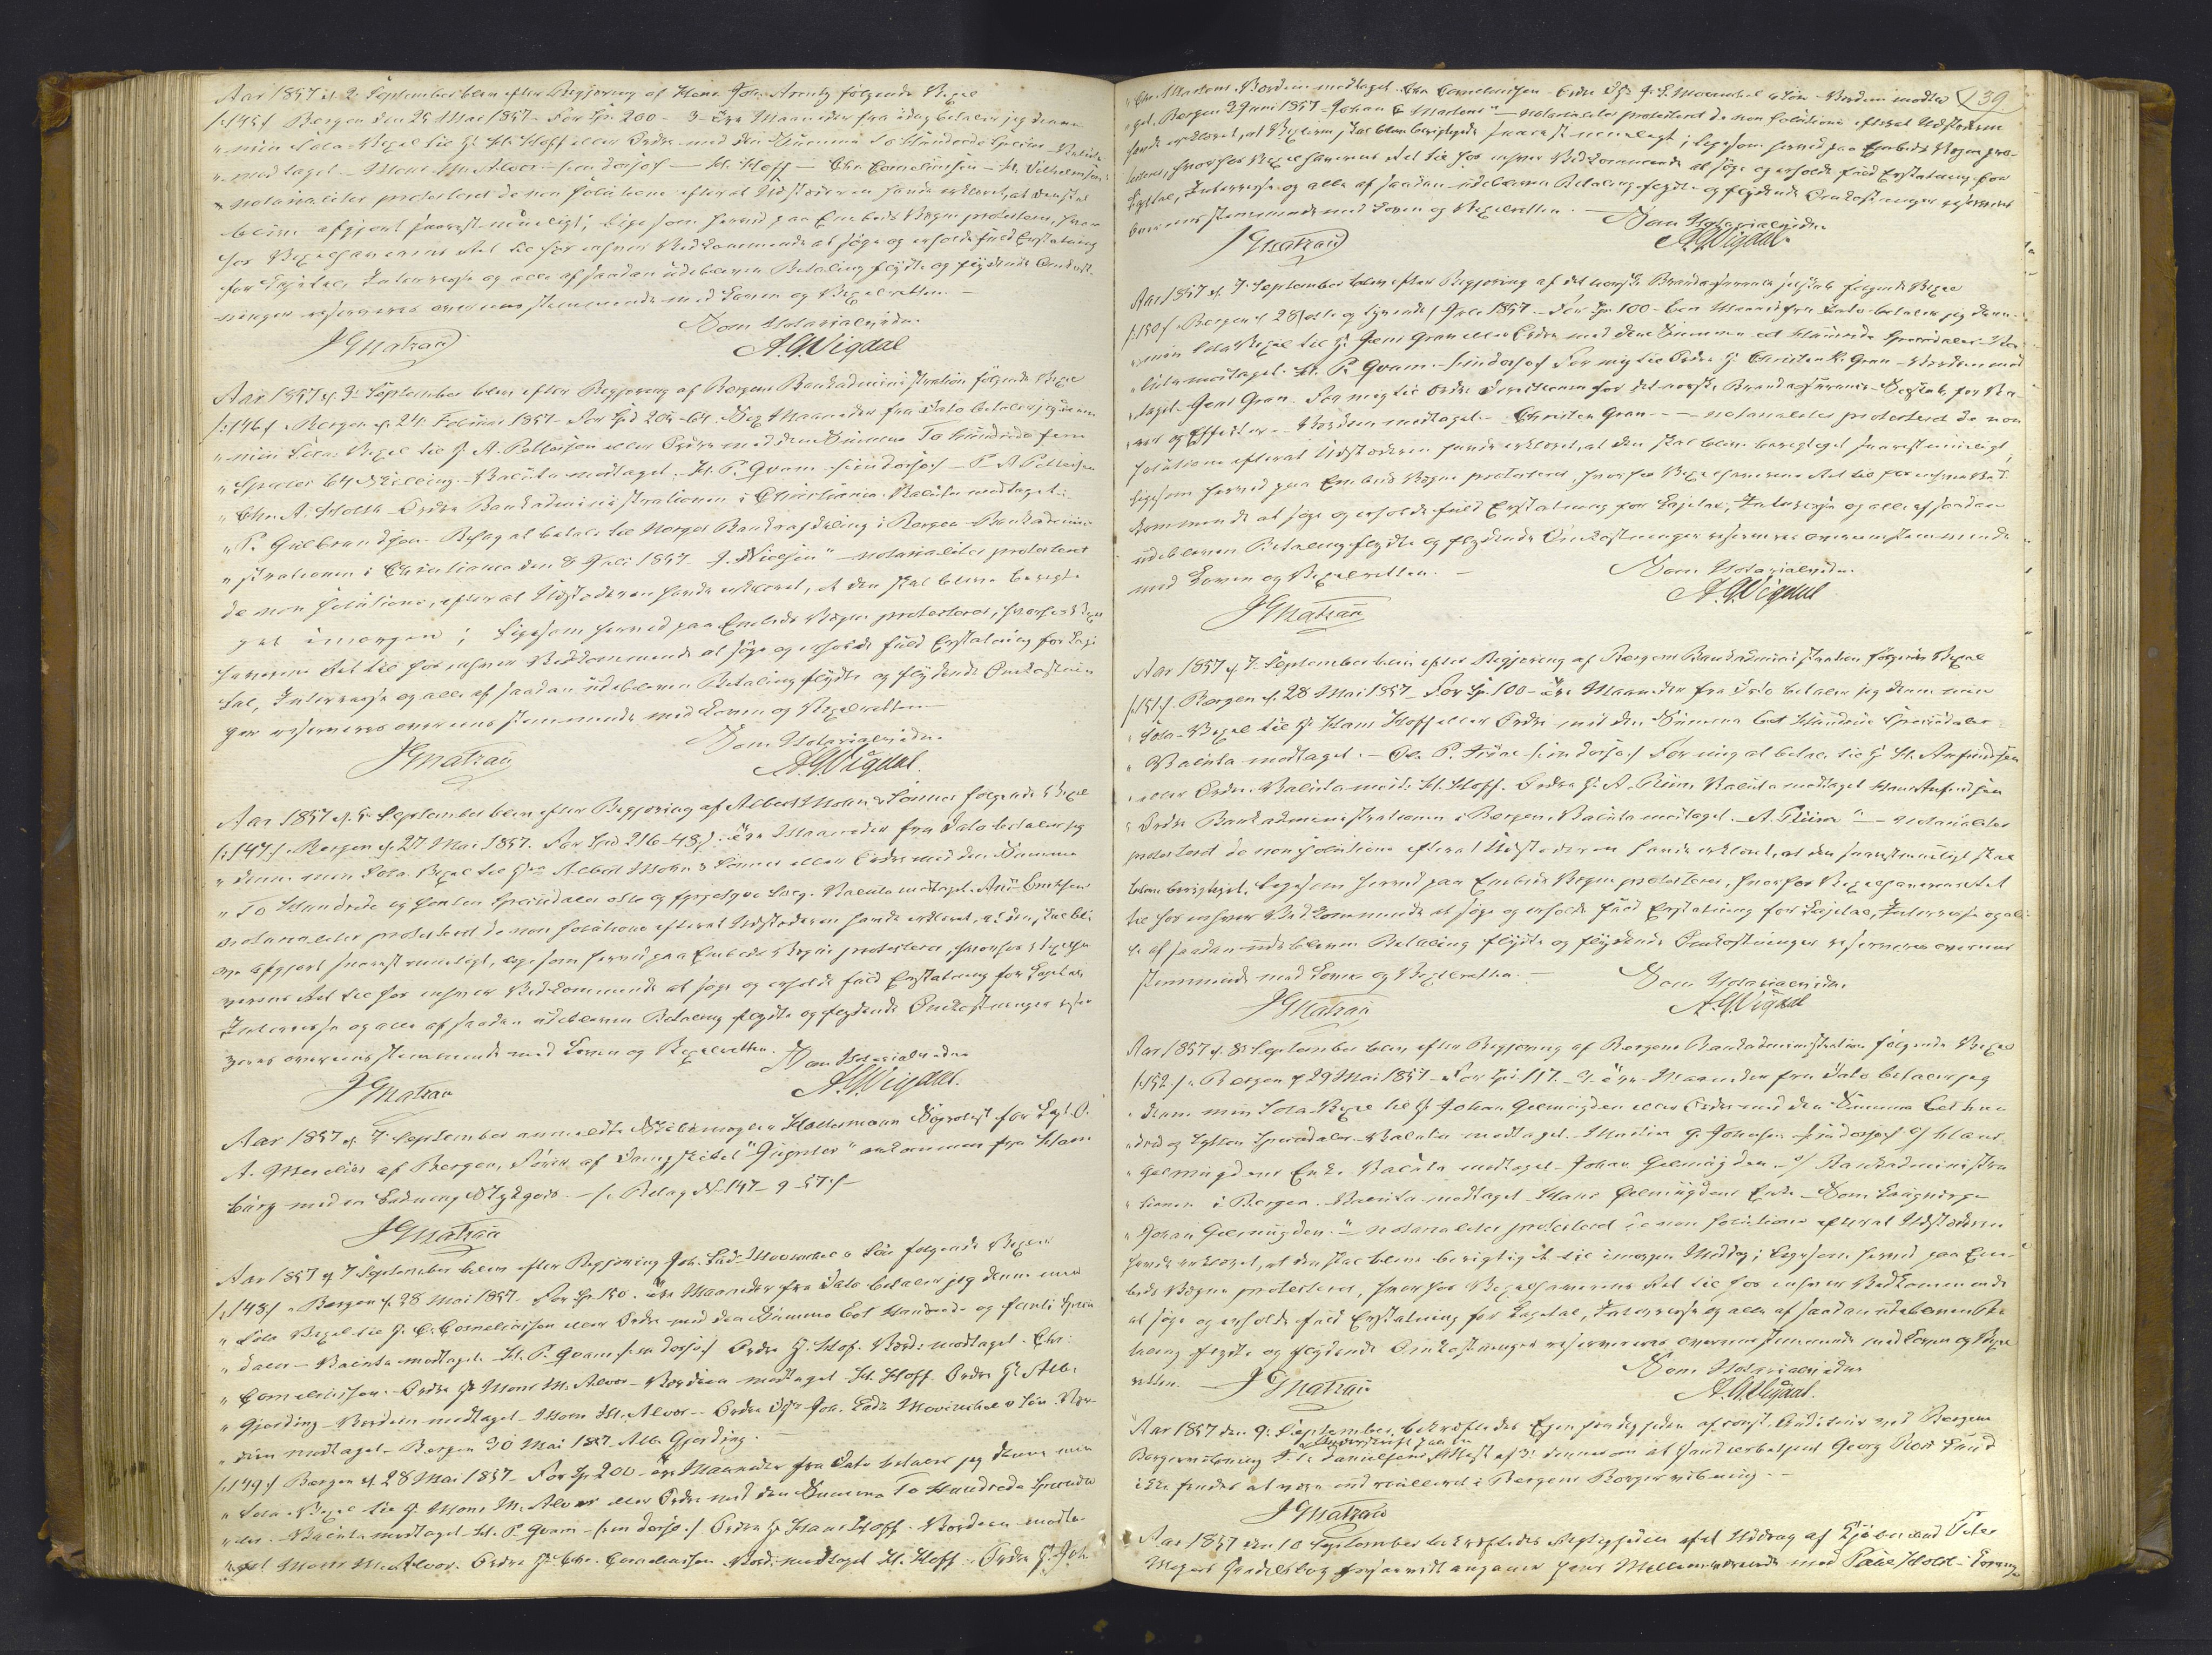 Aar 1857 d. 2 September blev efter Begjæring af Hans Joh. Arentz følgende Vexel
/:145/ Bergen den 25 Mai 1857. For Sp. 200 - 3 - tre Maaneder fra idag betaler jeg denne
" min Sola-Vexel til Hr. H. Hoff eller Ordre med den Summa To Hundrede Species - Valuta
" modtaget. - Mons M. Alvær - /in dorso/ - H. Hoff - Chr Corneliussen - H. Vilhelmsen
" notarialiter protesteret de non solutione efterat Udstederen havde erklæret, at den skal
blive afgjort snarest mueligt; ligesom herved paa Embeds Vegne protesteres, hvor
for Vexelhaverens Ret til hos enhver Vedkommende at søge og erholde fuld Erstatning
for Capital, Interesse og alle af saadan udebleven Betaling flydte og flydende Omkost-
ninger reserveres overensstemmende med Loven og Vexelretten. -
Som Notarialvidne
JGnatzau
A. G. Wigdal
Aar 1857 d. 2 September blev efter Begjæring af Bergens Bankadministration følgende Vexel
/:146/ Bergen d. 24 Februar 1857. For Spd 205 - 64. Sex Maaneder fra Dato betaler jeg denne
" min Sola-Vexel til Hr. A. Pettersen eller Ordre med den Summa To hundrede fem
" Species 64 Skilling. Valuta modtaget. H. P. Qvam - /in dorso/ - P. A Pettersen
" Chr. A. Holth Ordre Bankadministrationen i Christiania. Valuta modtaget.
" P. Gulbrandsen. Behag at betale til Norges Bankafdeling i Bergen - Bankadmini-
" strationen i Christiania den 8 Juli 1857. J. Nielsen" - notarialiter protesteret
de non solutione, efterat Udstederen havde erklæret, at den skal blive berigti-
get imorgen; ligesom herved paa Embeds Vegne protesteres, hvorfor Vexel
haverens Ret til hos enhver Vedkommende at søge og erholde fuld Erstatning for Capi
tal, Interesse og alle af saadan udebleven Betaling flydte og flydende Omkostnin
ger reserveres overensstemmende med Loven og Vexelretten.
Som Notarialvidne
JGnatzau
A. G. Wigdal.
Aar 1857 d. 5 September blev efter Begjæring af Albert Mohn & Sønner følgende Vexel
/:147/ Bergen d. 27 Mai 1857. For Spd 216 - 48 s: tre Maaneder fra Dato betaler jeg
" denne min Sola Vexel til Hrr. Albert Mohn & Sønner eller Ordre med den Summa
" To Hundrede og sexten Speciedaler otte og fyrretyve Skilg. Valuta modtaget.
notarialiter protesteret de non solutione efterat Udstederen havde erklæret, at den skal bli
ve afgjort snarest mueligt, ligesom herved paa Embeds Vegne protesteres, hvorfor Vexelha
verens Ret til hos enhver Vedkommende at søge og erholde fuld Erstatning for Capital
Interesse og alle af saadan udebleven Betaling flydte og flydende Omkostninger reser
veres overensstemmende med Loven og Vexelretten.
Som Notarialvidne
JGnatzau
A. G. Wigdal.
Aar 1857 d. 7 September anmeldte Skibsmægler Hollermann Søprotest for Capt. O.
A. Michelsen af Bergen, Fører af Dampskibet "Jupiter" ankommen fra Ham
burg med en Ladning Stykgods. - /: Bilag No 147 - 9 - 57:/
JGnatzau
Aar 1857 d. 7 September blev efter Begjæring Joh. Lud. Mowinckel & Søn følgende Vexler
/:148/ "Bergen d. 28 Mai 1857. For Sp. 150. tre Maaneder fra Dato betaler jeg denne min
" Sola Vexel til Hr. C. Corneliussen eller Ordre med den Summa Eet Hundrede og femti Specie
" daler - Valuta modtaget. H. P. Qvam /:in dorso:/ Ordre Hr. Hoff. Værd. modtaget. Chr:
" Corneliussen. Ordre Hr Mons M. Alvær - Værdien modtaget H. Hoff. Ordre Hr Alb.
" Gjerding - Værdien modtaget - Mons M. Alvær - Ordre DHrr Joh. Ludv Mowinckel & Søn. Vær-
" dien modtaget - Bergen 30 Mai 1857. Alb. Gjerding.
/:149/ Bergen d. 28 Mai 1857 - For Sp 200 - tre Maaneder fra Dato betaler jeg denne min
" Sola-Vexel til Hr. Mons M. Alvær eller Ordre med den Summa To Hundrede Specieda
" ler. Valuta modtaget. H. P. Qvam - /in dorso:/ Ordre Hr Hans Hoff. Værdien modta-
" get Mons M. Alvær. Ordre Hr Chr. Corneliussen. Værd. modtaget H. Hoff - Ordre Hr Joh.
139
" Chr. Martens. Værdien modtaget. Chr Corneliussen - Ordre DHr J. L. Mowinckel & Søn. Værdien modta
" get. Bergen 2 Juni 1857. Johan C Martens" - notarialiter protesteret de non solutione efterat Udstederen
havde erklæret, at Vexlerne skal blive berigtigede snarest mueligt; ligesom herved paa Embeds Vegne pro-
testeres, hvorfor Vexelhaverens Ret til hos enhver Vedkommende at søge og erholde fuld Erstatning for
Capital, Interesse og alle af saadan udebleven Betaling flydte og flydende Omkostninger reserveres
overensstemmende med Loven og Vexelretten.
Som Notarialvidne
JGnatzau
A. G. Wigdal.
Aar 1857 d. 7 September blev efter Begjæring af det norske Brandassuranceselskab følgende Vexel
/:150/ "Bergen d. 28 (otte og tyvende) Juli 1857 - For Sp. 100 - Een Maaned fra Dato betaler jeg denne
" min Sola Vexel til Hr. Jens Gran eller Ordre med den Summa eet Hundrede Speciedaler. Va-
" luta modtaget. H. P. Qvam. /in dorso/ For mig til Ordre Hr Christen K. Gran - Værdien mod
" taget. Jens Gran. For mig til Ordre Directionen for det norske Brandassurance-Selskab for Va-
" rer og Effecter - Værdien modtaget. - Christen Gran - - notarialiter protesteret de non
solutione efterat Udstederen havde erklæret, at den skal blive berigtiget snarest mueligt,
ligesom herved paa Embeds Vegne protesteres, hvorfor Vexelhaverens Ret til hos enhver Ved-
kommende at søge og erholde fuld Erstatning for Capital, Interesse og alle af saadan
udebleven Betaling flydte og flydende Omkostninger reserveres overensstemmende
med Loven og Vexelretten. -
Som Notarialvidne
JGnatzau
A. G. Wigdal
Aar 1857 d. 7 September blev efter Begjæring af Bergens Bankadministration følgende Vexel
/:151/. Bergen d. 28 Mai 1857 - For Sp. 100 - tre Maaneder fra Dato betaler jeg denne min
" Sola-Vexel til Hr. Hans Hoff eller Ordre med den Summa Eet Hundrede Speciedaler
" Valuta modtaget. - /:in dorso:/ For mig at betale til Hr H. Arnfindsen
" eller Ordre. Valuta modt: H. Hoff. Ordre Hr. A. Valuta modtaget Hans Arnfindsen
" Ordre Bankadministrationen i Bergen. Valuta modtaget. " - notarialiter
protesteret de non solutione efterat Udstederen havde erklæret, at den snarest mueligt skal
blive berigtiget, ligesom herved paa Embeds Vegne protesteres, hvorfor Vexelhaverens Ret
til hos enhver Vedkommende at søge og erholde fuld Erstatning for Capital, Interesse og al-
le af saadan udebleven Betaling flydte og flydende Omkostninger reserveres overens
stemmende med Loven og Vexelretten. -
Som Notarialvidne
JGnatzau
A. G. Wigdal
Aar 1857 d. 8 September blev efter Begjæring af Bergens Bankadministration følgende Vexel
/:152/ "Bergen d 29 Mai 1857 - For Sp. 117. - 3 - tre - Maaneder fra Dato betaler jeg
" denne min Sola-Vexel til Hr. Johan Gelmuyden eller Ordre med den Summa Eet hun
" drede og sytten Speciedaler. Valuta modtaget. /in dorso/ Hans
" Gelmuydens Enke. Valuta modtaget - Johan Gelmuyden. Bankadministra
" tionen i Bergen. Valuta modtaget. Hans Gelmuydens Enke - Som Laugværge
" Johan Gelmuyden." - notarialiter protesteret de non solutione efterat Udstederen
havde erklæret, at den skal blive berigtiget til imorgen Middag; ligesom herved paa Em-
beds Vegne protesteres, hvorfor Vexelhaverens Ret til hos enhver Vedkommende
at søge og erholde fuld Erstatning for Capital, Interesse og alle af saadan udebleven Be
taling flydte og flydende Omkostninger reserveres overensstemmende med Loven og Vexel
retten.
Som Notarialvidne
JGnatzau
A. G. Wigdal.
Aar 1857 den 9 September bekræftedes Egenhændigheden af const. Auditeur ved Bergens
Underskrift paa en
Borgervæbning Danielsens Attest af 3 dennes om at Georg
ikke findes at være i Bergens Borgervæbning. -
JGnatzau
Aar 1857 den 10 September bekræftedes Rigtigheden af et Uddrag af Kjøbmand Peter
Handelsbog Mellemværende med